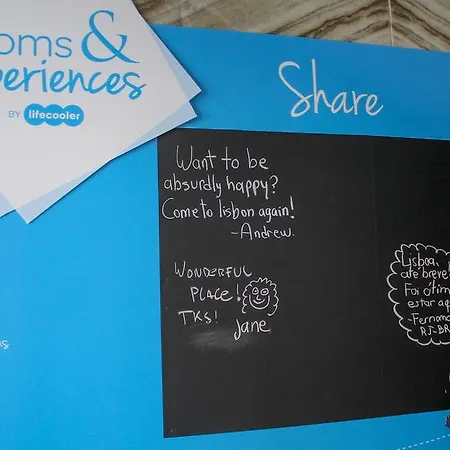 &
BY lifecooler
Share
Want to be
absurdly happy?
Come to lisbon again!
-Andrew.
WONDERFUL
PLACE!
TKS!
Jane
Lisboa,
até breve
Foi ótim
estar aq
-Fernan
RJ-BR